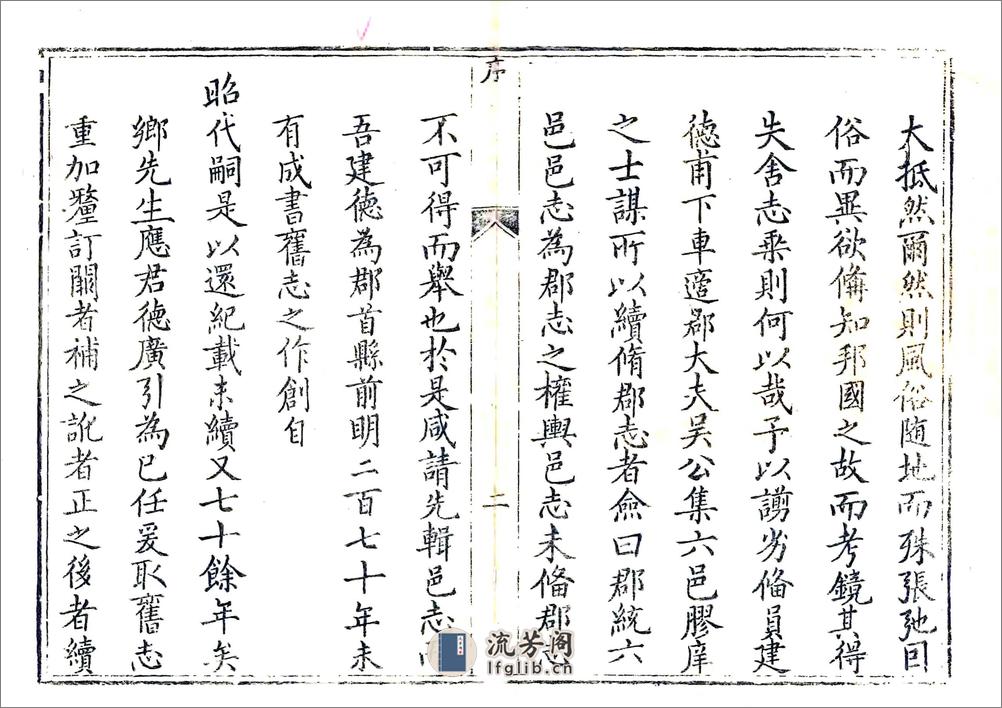 大抵然爾然則風俗随地而殊張弛囙
俗而異欲俻知邦國之故而考鏡其得
失舍志乗則何以哉予以謭劣俻員建
德甫下車適郡大夫吴公集六邑膠庠
之士謀所以續脩郡志者僉曰郡統六
邑邑志為郡志之權輿邑志未俻郡志
不可得而舉也於是咸請先輯邑志
吾建德為郡首縣前明二百七十年未
有成書舊志之作創自
昭代嗣是以還紀載未續又七十餘年矣
鄉先生應君德廣引為已任爰取舊志
重加釐訂闕者補之訛者正之後者續
序
二
流芳阁
lfglib.cn